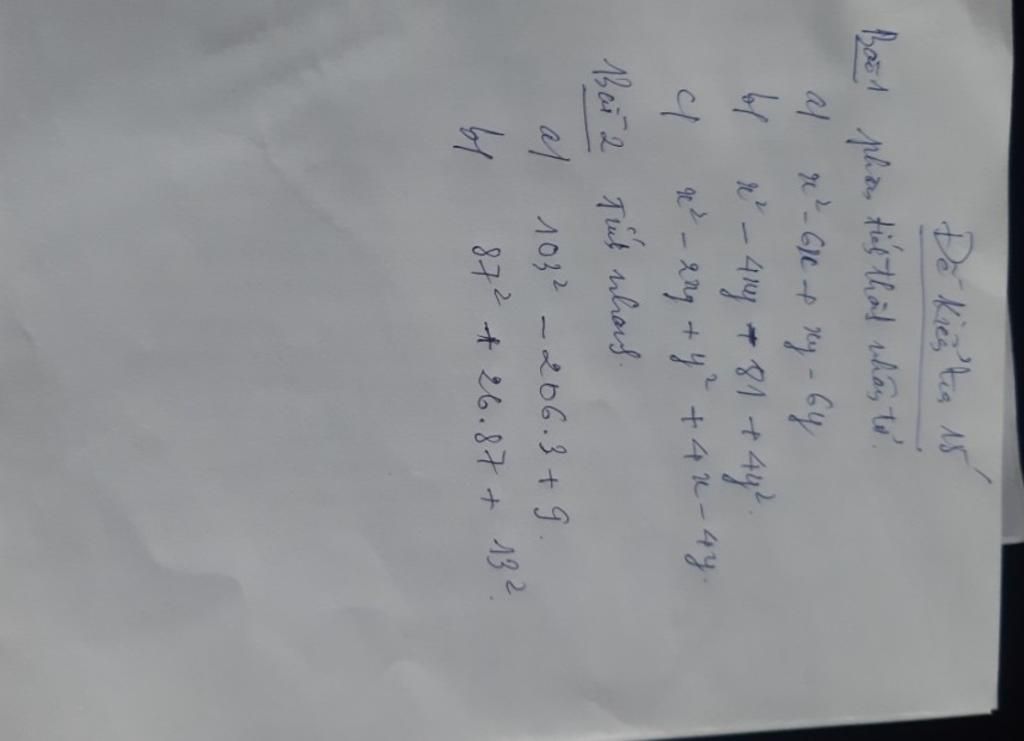 Đề kiểm tra 15'
Bài 1 phân tích thành nhân tử.
a) x² - 6x + xy - 6y
b) x² - 4xy - 81 + 4y².
c) x² - 2xy + y² + 4x - 4y.
Bài 2 Tính nhanh.
a) 103² - 206.3 + 9.
b) 87² + 26.87 + 13².